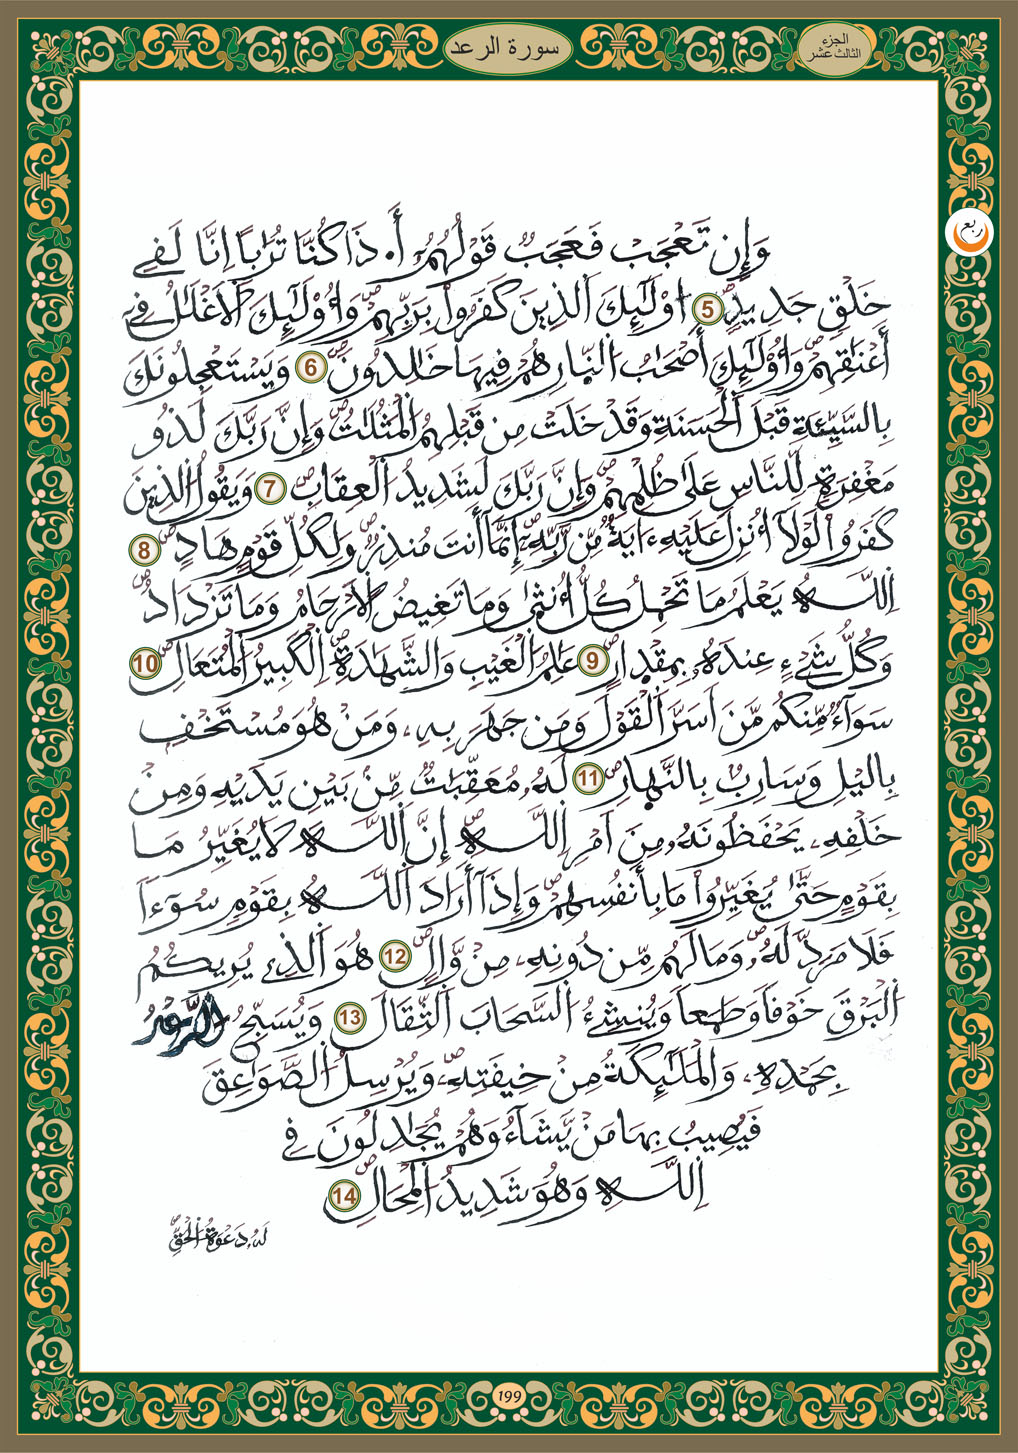 سورة الرعد
الجزء
الثالث عشر
ربع
وَإِن تَعْجَبْ فَعَجَبٌ قَوْلُهُمُۥٓ أَ.ذَا كُنَّا تُرَٰباً اِنَّا لَفِے
خَلْقٍ جَدِيدٍۖ 5 اُوْلَٰٓئِكَ اَلذِينَ كَفَرُواْ بِرَبِّهِمْۖ وَأُوْلَٰٓئِكَ اَلَاغْلَٰلُ فِےٓ
أَعْنَٰقِهِمْۖ وَأُوْلَٰٓئِكَ أَصْحَٰبُ اُلنّ۪ارِ هُمْ فِيهَا خَٰلِدُونَۖ 6 وَيَسْتَعْجِلُونَكَ
بِالسَّيِّئَةِ قَبْلَ اَلْحَسَنَةِ وَقَدْ خَلَتْ مِن قَبْلِهِمُ اُلْمَثُلَٰتُۖ وَإِنَّ رَبَّكَ لَذُو
مَغْفِرَةٍ لِّلنَّاسِ عَلَىٰ ظُلْمِهِمْۖ وَإِنَّ رَبَّكَ لَشَدِيدُ اُلْعِقَابِۖ 7 وَيَقُولُ اُلذِينَ
كَفَرُواْ لَوْلَآ أُنزِلَ عَلَيْهِ ءَايَةٌ مِّن رَّبِّهِۦٓۖ إِنَّمَآ أَنتَ مُنذِرٌۖ وَلِكُلِّ قَوْمٍ هَادٍۖ 8
اِ۬للَّهُ يَعْلَمُ مَا تَحْمِلُ كُلُّ أُنثَىٰ وَمَا تَغِيضُ اُلَارْحَامُ وَمَا تَزْدَادُۖ
وَكُلُّ شَےْءٍ عِندَهُۥ بِمِقْدَارٍۖ 9 عَٰلِمُ اُلْغَيْبِ وَالشَّهَٰدَةِۖ اِلْكَبِيرُ اُلْمُتَعَالِۖ 10
سَوَآءٌ مِّنكُم مَّنَ اَسَرَّ اَلْقَوْلَ وَمَن جَهَرَ بِهِۦ وَمَنْ هُوَ مُسْتَخْفِۢ
بِاليْلِ وَسَارِبُۢ بِالنَّه۪ارِۖ 11 لَهُۥ مُعَقِّبَٰتٌ مِّنۢ بَيْنِ يَدَيْهِ وَمِنْ
خَلْفِهِۦ يَحْفَظُونَهُۥ مِنَ اَمْرِ اِللَّهِۖ إِنَّ اَللَّهَ لَا يُغَيِّرُ مَا
بِقَوْمٍ حَتَّىٰ يُغَيِّرُواْ مَا بِأَنفُسِهِمْۖ وَإِذَآ أَرَادَ اَللَّهُ بِقَوْمٍ سُوٓءاً
فَلَا مَرَدَّ لَهُۥۖ وَمَا لَهُم مِّن دُونِهِۦ مِنْ وَّالٍۖ 12 هُوَ اَلذِے يُرِيكُمُ
اُلْبَرْقَ خَوْفاً وَطَمَعاً وَيُنشِۓُ اُلسَّحَابَ اَلثِّقَالَ 13 وَيُسَبِّحُ اُلرَّعْدُ
بِحَمْدِهِۦ وَالْمَلَٰٓئِكَةُ مِنْ خِيفَتِهِۦۖ وَيُرْسِلُ اُلصَّوَٰعِقَ
فَيُصِيبُ بِهَا مَنْ يَّشَآءُ وَهُمْ يُجَٰدِلُونَ فِے
اِللَّهِ وَهُوَ شَدِيدُ اُلْمِحَالِۖ 14
لَهُۥ دَعْوَةُ اُلْحَقِّۖ
199